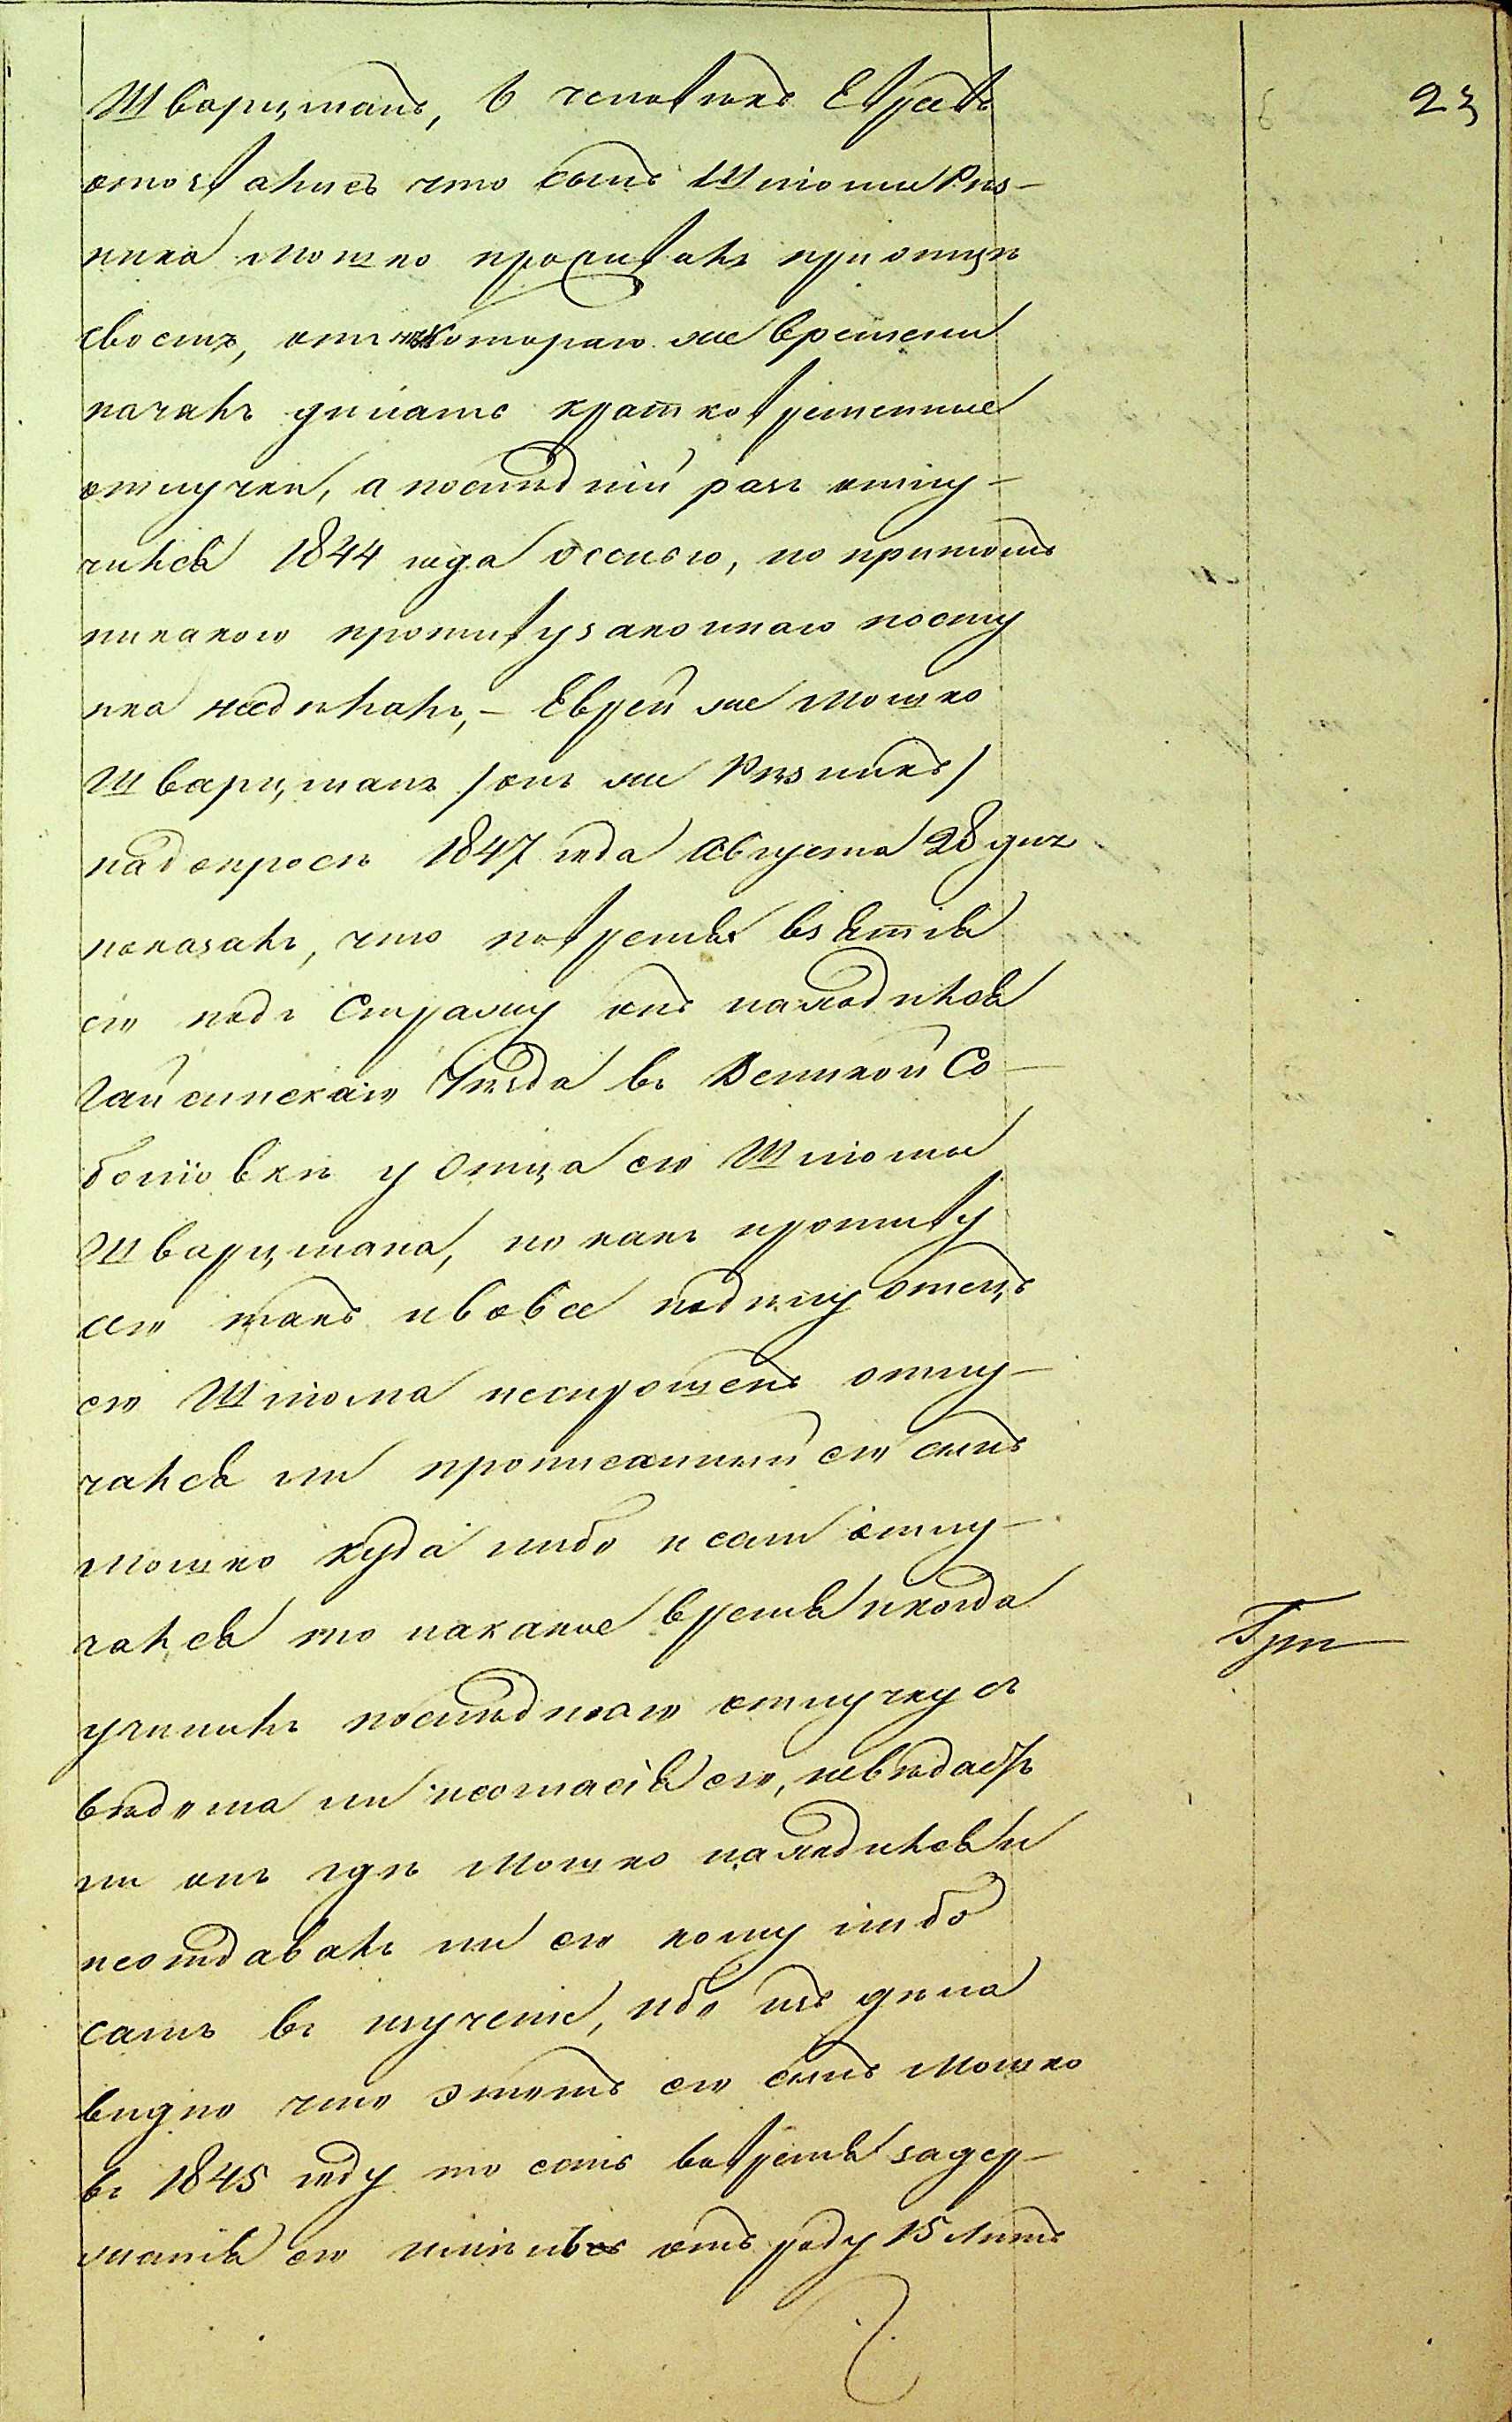 23
Шварцманъ, 6 человѣкъ Евреевъ
отозвались что сынъ Шліомы Рѣз-
ника Мошко проживалъ при отцѣ
своемъ, отъ некотораго же времени
началъ дѣлать кратковременные
отлучки, а послѣдній разъ отлу-
чился 1844 года осенью, но притомъ
никакого противузаконнаго посту
пка неделалъ, – Еврей же Мошко
Шварцманъ /онъ же Рѣзникъ/
надопросѣ 1847 года Августа 28 дня
показалъ, что повремя взятія
его подъ Стражу онъ находился
Гайсинскаго Уѣзда въ Великой Со-
болiовкѣ у Отца его Шліомы
Шварцмана, но какъ противу
сего такъ и вовсе по дѣлу Отецъ
его Шліома неспрошенъ отлу-
чался ли прописанный его сынъ
Мошко куда либо и если отлу-
чался то накакие время и когда
учинилъ последнюю отлучку съ
вѣдома ли и согласія его, невѣдаетъ
ли онъ где Мошко находился и
неотдавалъ ли его кому либо
самъ въ изученіе, ибо изъ дѣла
видно что этотъ его сынъ Мошко
въ 1845 году то есть вовремя задер-
жанія его имелъ отъ роду 15 лѣтъ